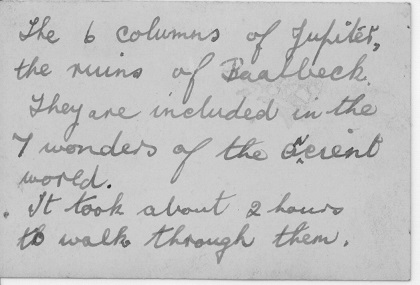 The 6 columns of Jupiter,
the ruins of Baalbeck.
They are included in the
7 wonders of the acient
world.
. It took about 2 hours
to walk through them.